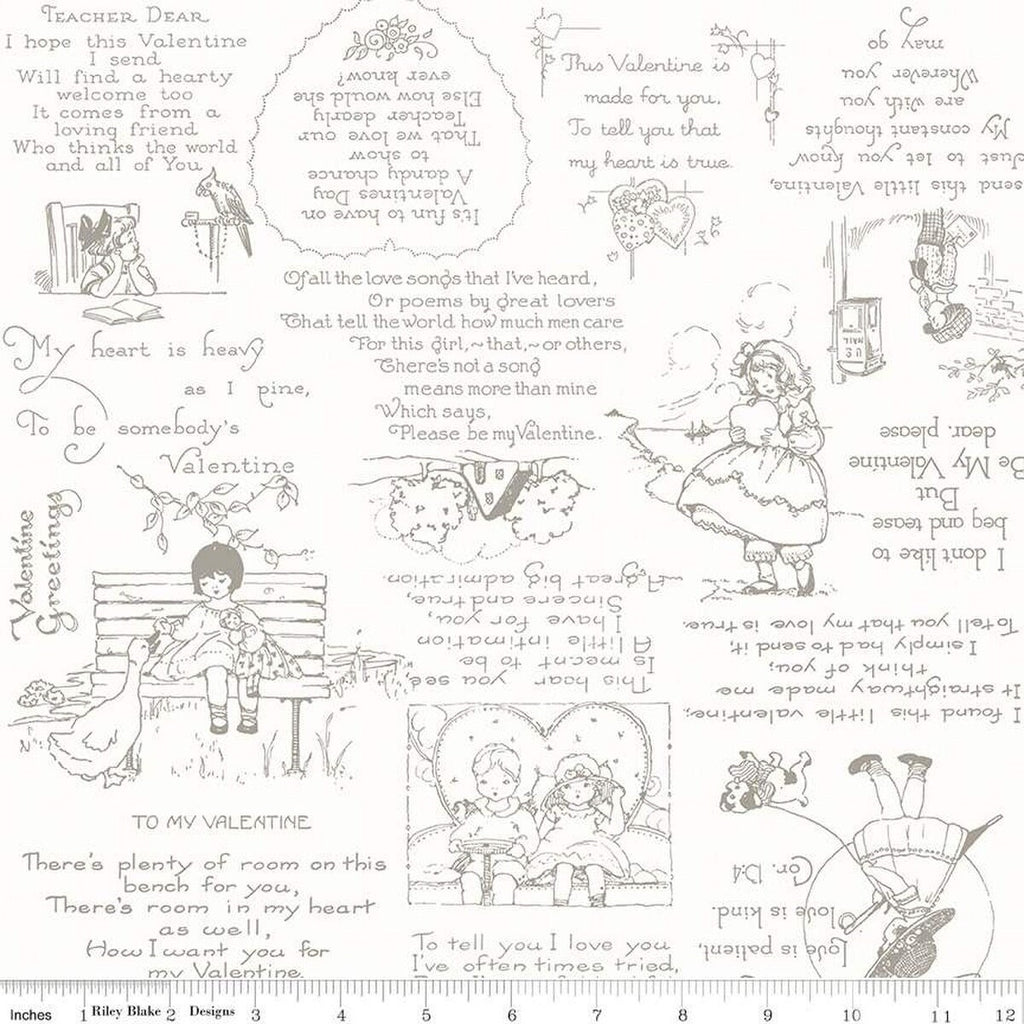 TEACHER DEAR
I hope this Valentine
I send
Will find a hearty
welcome too
It comes from a
loving friend
Who thinks the world
and all of You
It's fun to have on
Valentines Day
A dandy chance
to show
That we love our
Teacher dearly
Else how would she
ever know?
This Valentine is
made for you,
To tell you that
my heart is true.
send this little Valentine,
Just to let you know
My constant thoughts
are with you
Wherever you
may go
Of all the love songs that I've heard,
Or poems by great lovers
That tell the world how much men care
For this girl,~that,~or others,
There's not a song
means more than mine
Which says,
Please be my Valentine.
My heart is heavy
as I pine,
To be somebody's
Valentine
Valentine
Greetings
U.S
MAIL
I don't like to
beg and tease
But
Be My Valentine
dear, please
This hour, you see,
Is meant to be
A little intimation
I have for you,
Sincere and true,
A great big admiration.
I found this little valentine,
It straightway made me
think of you;
I simply had to send it,
To tell you that my love is true.
TO MY VALENTINE
There's plenty of room on this
bench for you,
There's room in my heart
as well,
How I want you for
my Valentine.
To tell you I love you
I've often times tried,
Love is patient,
love is kind.
Cor. 13:4
Inches 1 Riley Blake 2 Designs 3 4 5 6 7 8 9 10 11 12